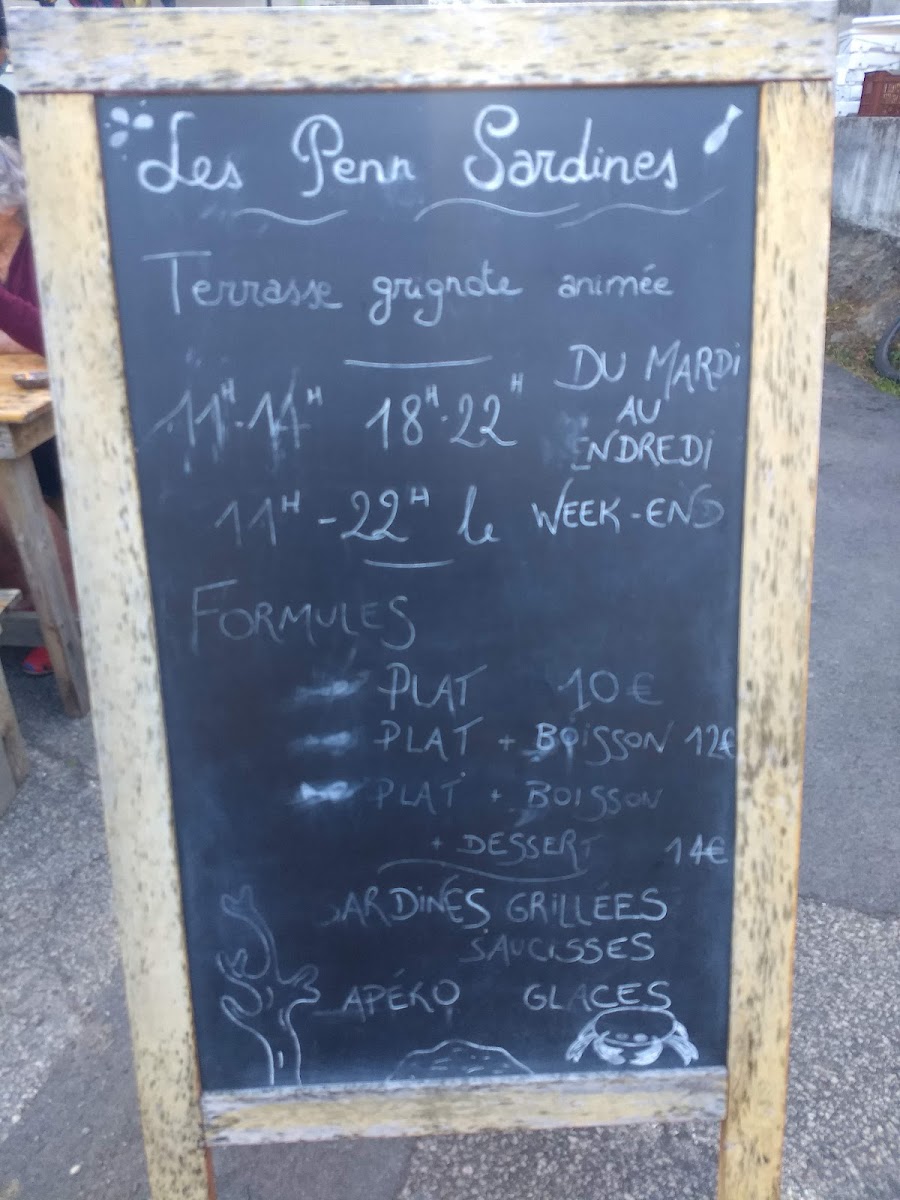 Les Penn Sardines
Terrasse grignote animée
11H-14H 18H-22H DU MARDI
AU
ENDREDI
11H-22H le WEEK-END
FORMULES
PLAT 10€
PLAT + BOISSON 12€
PLAT + BOISSON
+ DESSERT 14€
SARDINES GRILLÉES
SAUCISSES
APÉRO GLACES